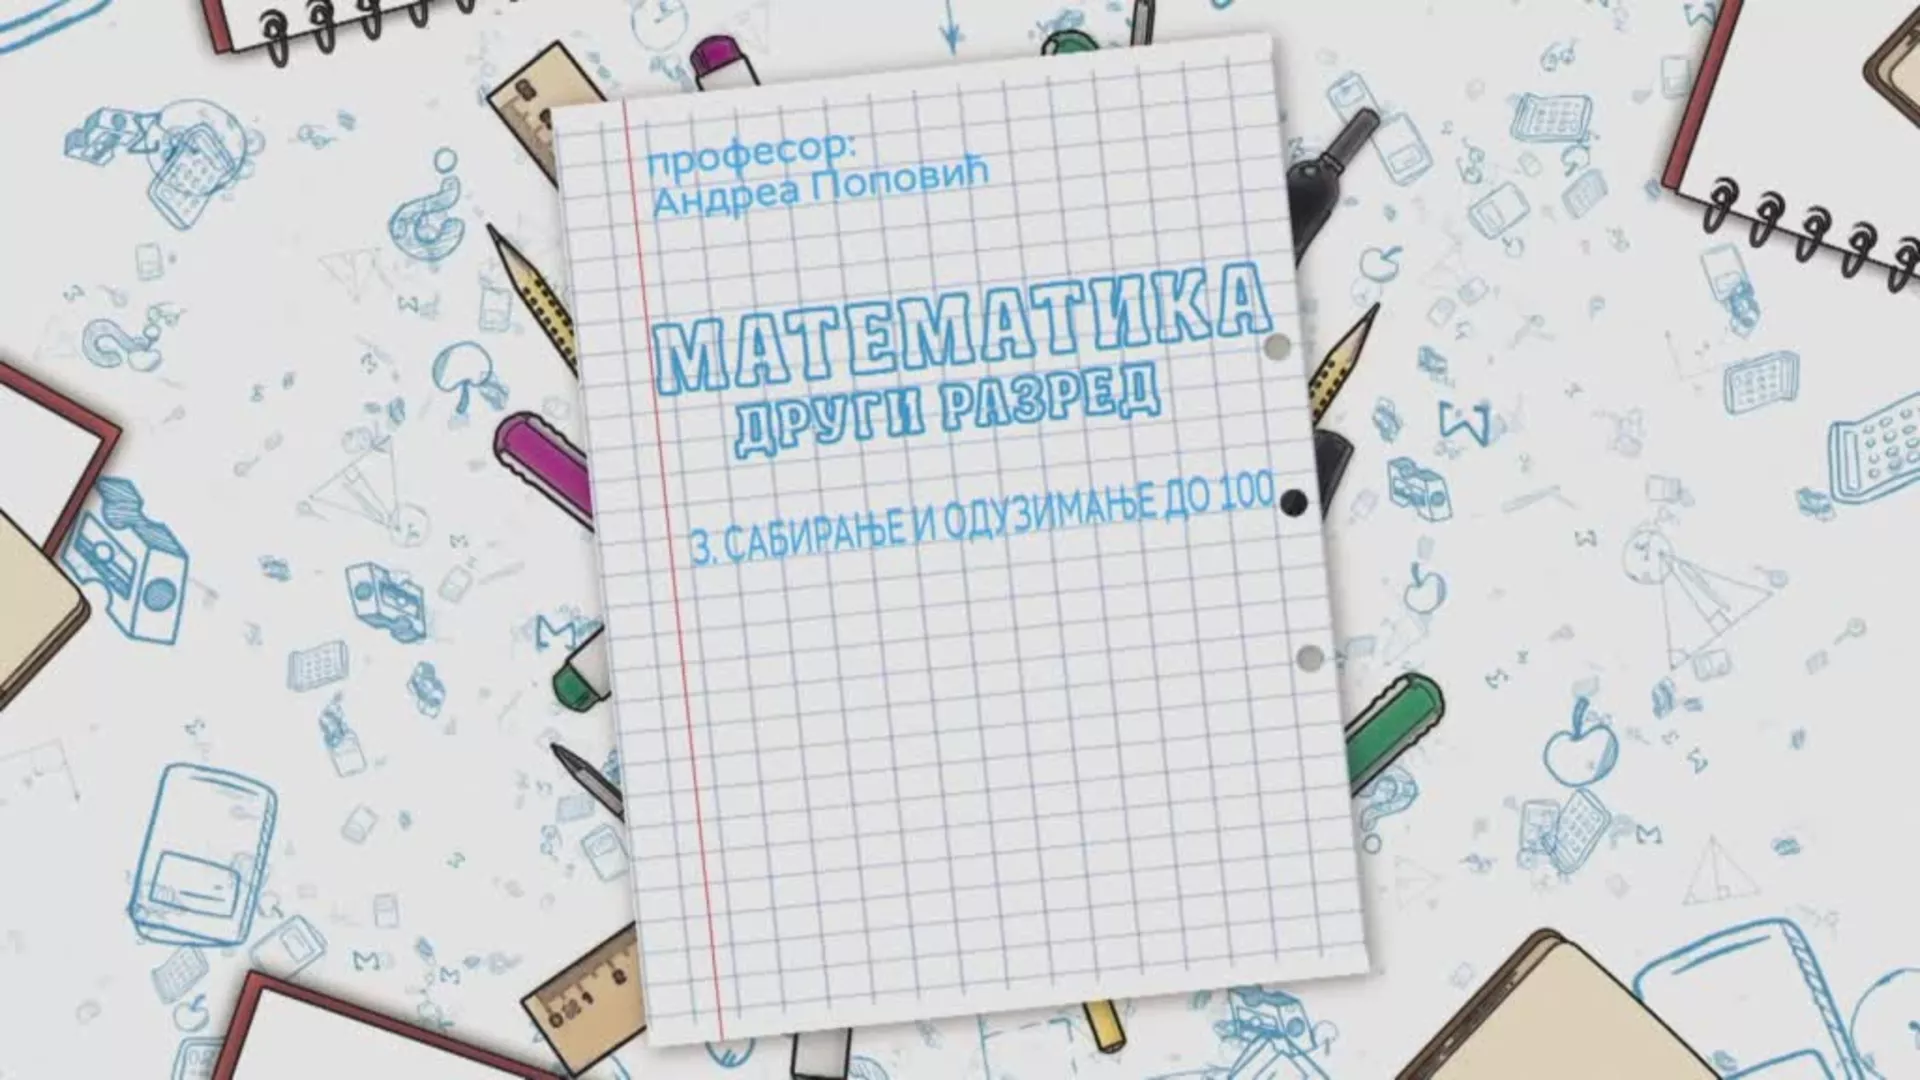 професор:
Андреа Поповић
МАТЕМАТИКА
ДРУГИ РАЗРЕД
3. САБИРАЊЕ И ОДУЗИМАЊЕ ДО 100